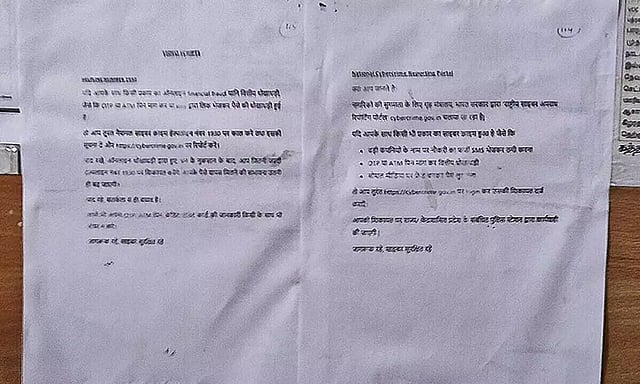 यदि आपके साथ किसी प्रकार का ऑनलाइन financial fraud यानि वित्तीय धोखाधड़ी
जैसे कि OTP या ATM पिन मांग कर या द्वारा लिंक भेजकर पैसे की धोखाधड़ी हुई
है
तो आप तुरंत नेशनल साइबर क्राइम हेल्पलाइन नंबर 1930 पर काल करे तथा इसकी
सूचना दे और https://cybercrime.gov.in पर रिपोर्ट करें।
याद रहे, ऑनलाइन धोखाधड़ी द्वारा हुए के नुकसान के बाद, आप जितनी जल्दी
नंबर 1930 पर शिकायत करेंगे, आपके पैसे वापस मिलने की संभावना उतनी
ही बढ़ जाएगी।
याद रहे, सतर्कता में ही बचाव है।
कभी भी अपना OTP, ATM पिन, कार्ड की जानकारी किसी के साथ भी
शेयर न करें।
जागरूक रहें, साइबर सुरक्षित रहें
114
National Cybercrime Reporting Portal
क्या आप जानते है
नागरिकों की सुगमता के लिए गृह मंत्रालय, भारत सरकार द्वारा 'राष्ट्रीय साइबर अपराध
रिपोर्टिंग पोर्टल' cybercrime.gov.in चलाया जा रहा है।
यदि आपके साथ किसी भी प्रकार का साइबर क्राइम हुआ है जैसे कि
• बड़ी कंपनियों के नाम पर नौकरी का फर्जी SMS भेजकर ठगी करना
• OTP या ATM पिन मांग कर वित्तीय धोखाधड़ी
• सोशल मीडिया पर फ्रेंड बनकर पैसे
तो आप तुरंत https://cybercrime.gov.in पर login कर उसकी शिकायत दर्ज
कराएं
आपकी शिकायत पर राज्य/ केंद्रशासित प्रदेश के संबंधित पुलिस स्टेशन द्वारा कार्यवाही
की जाएगी।
जागरूक रहें, साइबर सुरक्षित रहें